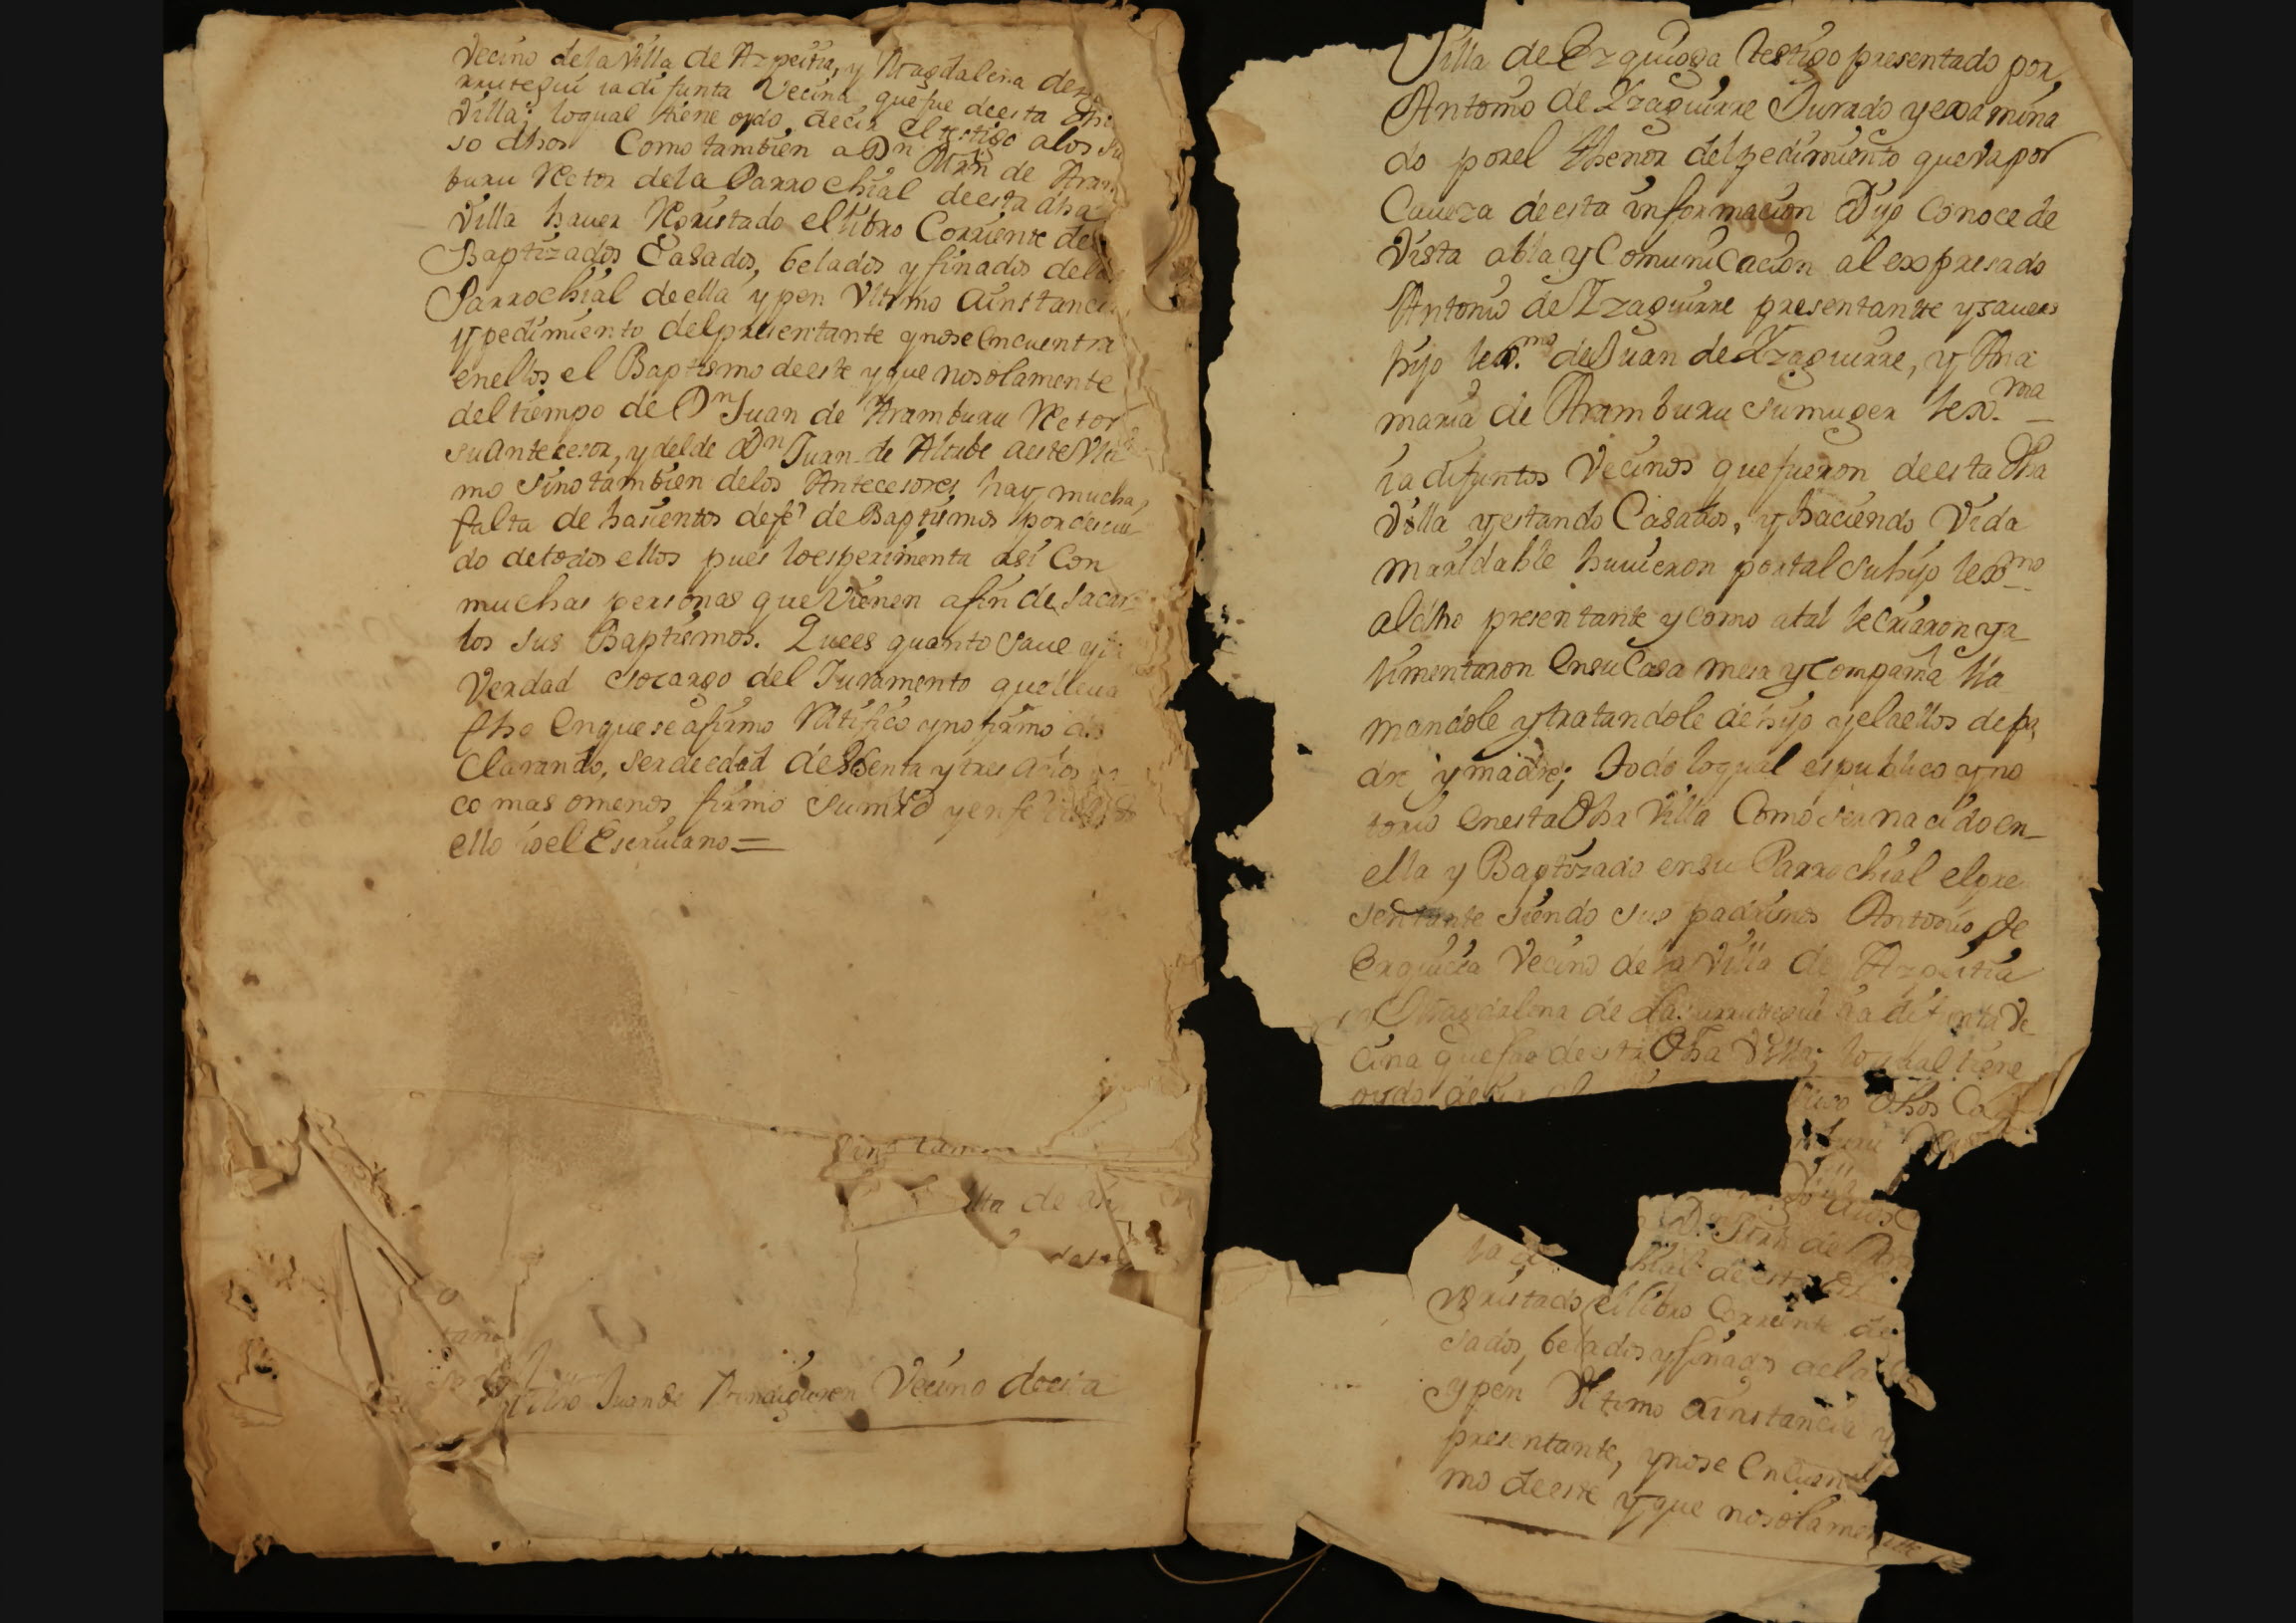 Vecino dela Villa de Azpeitia, y Magdalena de
rrutegui ia difunta Vecina que fue deesta dha
Villa; loqual tiene oydo decir el testigo alos su
so dhos Como tambien a Dn Mrn de Aram
buru Retor dela Parrochial deesta dha
Villa haver Rexistado ellibro Corriente de
Baptizados Casados, belados y finados dela
Parrochial deella y pen Vltimo ainstancia
y pedimiento delpresentante ynose encuentra
enellos el Baptismo deeste y que nosolamente
deltiempo de Dn Juan de Aramburu Retor
suantecesor, y delde Dn Juan de Altube aeste Vlti
mo sino tambien delos Antecesores hay mucha
falta de hasientos defe de Baptismos por descui
do detodos ellos pues loesperimenta asi Con
muchas personas que Vienen afin de sacar
los sus Baptismos. Quees quanto save y
Verdad socargo del Juramento quelleva
fho Enquese afirmo Ratifico yno firmo de
Clarando, serdeedad de sesenta y tres años
co mas omenos firmo sumrd y enfe
ello ioel Escrivano =
sino tamvi
lta de
Juande Vecino deesta
Villa de Ezquioga testigo presentado por
Antonio de Yzaguirre Jurado y examina
do porel thenor delpedimiento queva por
Caveza deesta informacion Dijo Conoce de
Vista abla y Comunicacion al expresado
Antonio de Yzaguirre presentante ysaver es
hijo lexmo. deJuan de Yzaguirre, y Ana
maria de Aramburu sumuger lexma. –
ia difuntos Vecinos quefueron deesta dha
Villa y estando Casados, y haciendo Vida
maridable huvieron portal suhijo lexmo
aldho presentante y como atal lecriaron ya
limentaron Ensu Casa mesa y Compañia lla
mandole ytratandole dehijo yelaellos depa
dre ymadre; todo loqual espublico yno
torio Enesta dha Villa Como ser nacido en
ella y Baptizado ensu Parrochial elpre
sentante siendo sus padrinos Antonio de
Erquicia Vecino dela Villa de Azpeitia
Magdalena de ia difunta Ve
cina quefue deesta dha Villa; loqual tiene
oydo decir
dhos Co
Villa
Dn de
hial deesta
Rexistado ellibro Corriente de
sados, belados yfinados dela
y pen Vltimo ainstancia y
presentante, ynose Encuent
mo deeste y que nosolamente